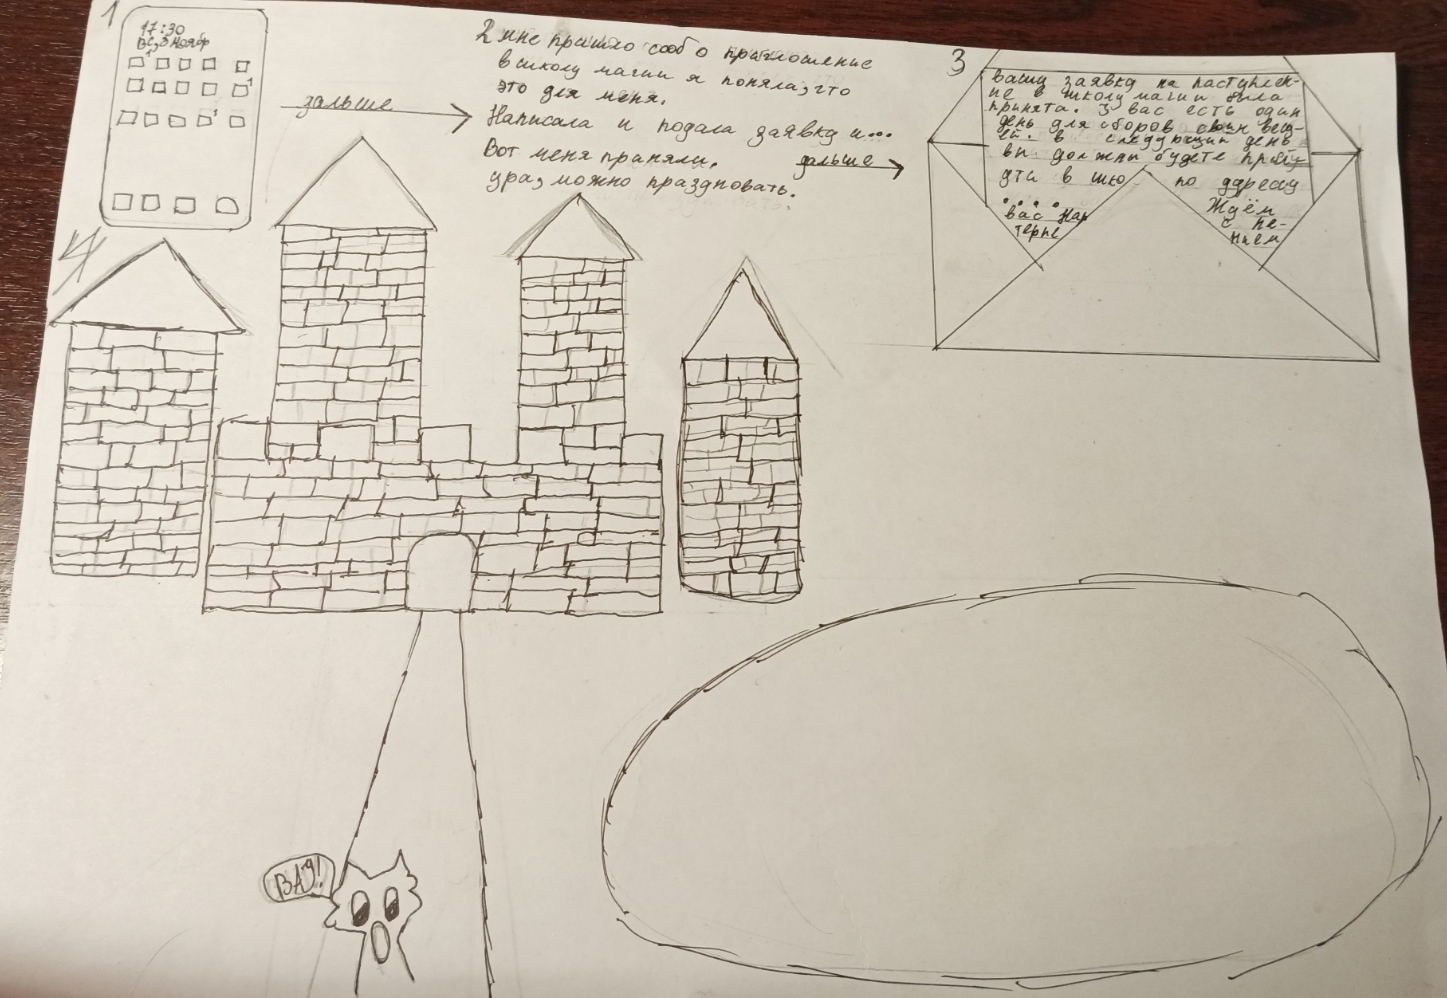 1
17:30
ВС, 3 Ноябр
1
1
1
дальше
2 мне пришло сооб о приглошение
в школу магии я поняла, что
это для меня.
Написала и подала заявку и...
Вот меня праняли.
ура, можно праздновать.
дальше
3
вашу заявку на паступлен-
ие в школу магии была
принята. У вас есть один
день для сборов своих вещ-
ей. в следующий день
вы должны будете прий-
дти в шко по адресу
. . . .
Ждём
вас нан
с не-
терпе
нием
4
ВАУ!